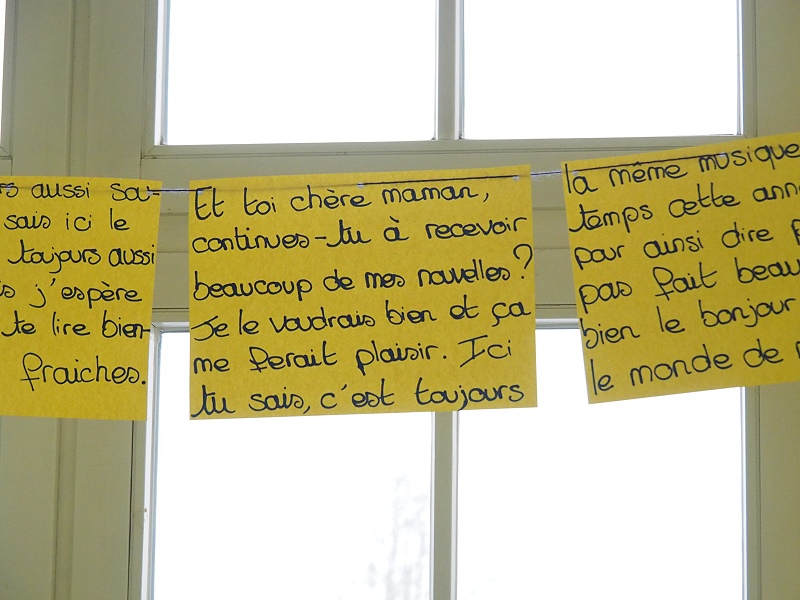 rs aussi sou-
sais ici le
toujours aussi
j'espère
te lire bien-
fraiches.
Et toi chère maman,
continues-tu à recevoir
beaucoup de mes nouvelles?
Je le voudrais bien et ça
me ferait plaisir. Ici
tu sais, c'est toujours
la même musique
temps cette
pour ainsi dire
pas fait
bien le bonjour
le monde de